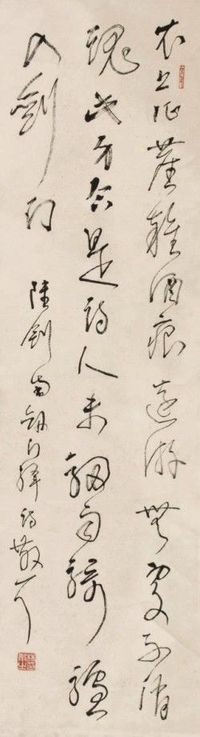 衣上征塵雜酒痕遠游無處不消
魂此身合是詩人未細雨騎驢
入劍門
陸劍南詩散耳